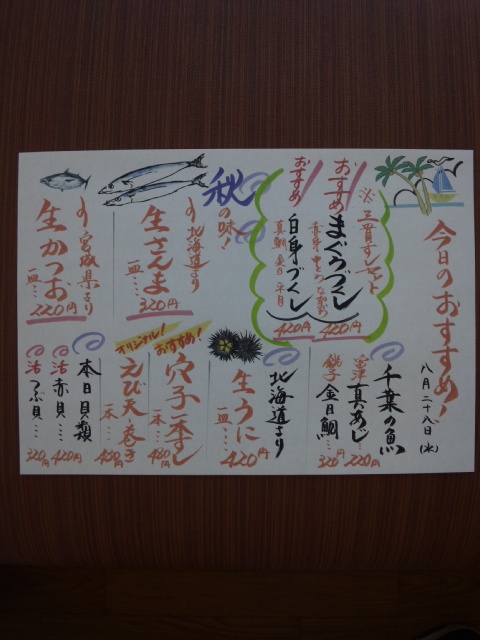 今日のおすすめ!
八月二十八日(水)
三貫すセット
おすすめ
まぐろづくし
420円
おすすめ
白身づくし
真鯛 金目 平目
420円
秋の味!
北海道より
生さんま
一皿…
320円
宮城県より
生かつお
一皿…
220円
千葉の魚
真あじ…
220円
銚子
金目鯛…
320円
北海道より
生うに
一皿…
420円
おすすめ!
穴子一本すし
一本…
480円
オリジナル!
えび天一巻き
一本…
480円
本日貝類
活赤貝…
420円
活つぶ貝…
320円